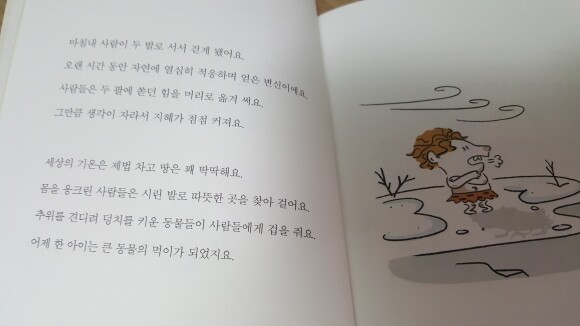 마침내 사람이 두 발로 서서 걷게 됐어요.
오랜 시간 동안 자연에 열심히 적응하며 얻은 변신이에요.
사람들은 두 팔에 쏟던 힘을 머리로 옮겨 써요.
그만큼 생각이 자라서 지혜가 점점 커져요.
세상의 기온은 제법 차고 땅은 꽤 딱딱해요.
몸을 웅크린 사람들은 시린 발로 따뜻한 곳을 찾아 걸어요.
추위를 견디려 덩치를 키운 동물들이 사람들에게 겁을 줘요.
어제 한 아이는 큰 동물의 먹이가 되었지요.